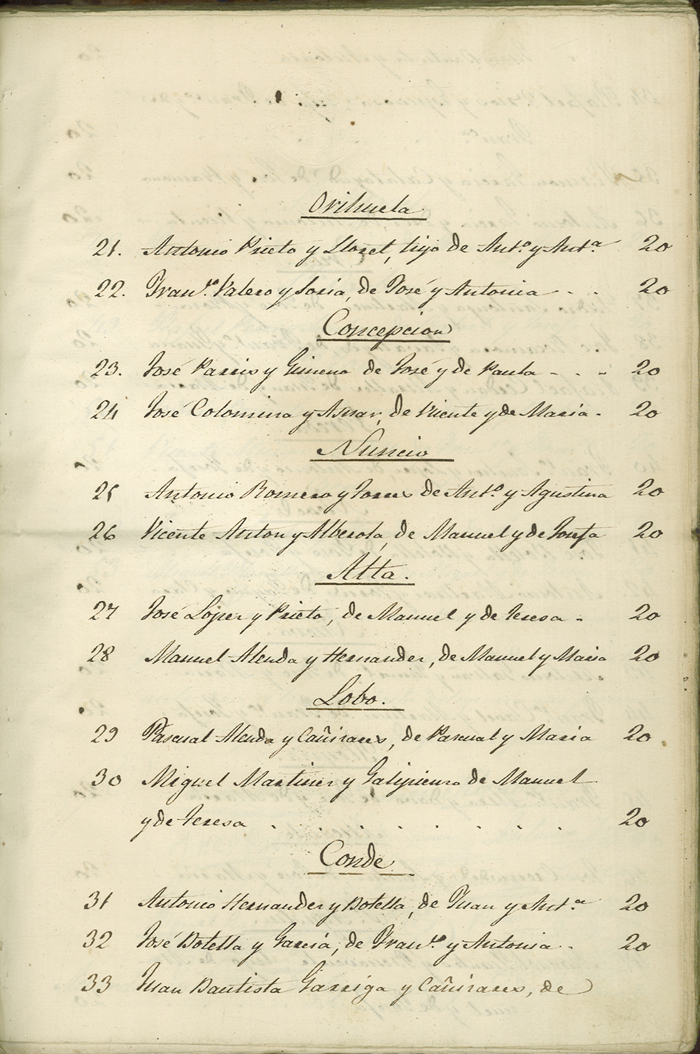 Orihuela
21. Antonio Prieto y Lloret, hijo de Ant.º y Ant.ª 20
22. Fran.co Valero y Soria, de José y Antonia - - 20
Concepcion
23. José Parris y Gimeno de José y de Paula - - - 20
24 José Colomina y Aznar, de Vicente y de Maria - 20
Nuncio
25 Antonio Romero y Torres de Ant.º y Agustina 20
26 Vicente Anton y Alberola, de Manuel y de Josefa 20
Alta.
27 José López y Prieto, de Manuel y de Teresa - 20
28 Manuel Alenda y Hernandez, de Manuel y Maria 20
Lobo.
29 Pascual Alenda y Cañizares, de Pascual y Maria 20
30 Miguel Martinez y Galipienzo de Manuel
y de Teresa . . . . . . . 20
Conde
31 Antonio Hernandez y Botella, de Juan y Ant.ª 20
32 José Botella y García, de Fran.co y Antonia - - 20
33 Juan Bautista Garriga y Cañizares, de